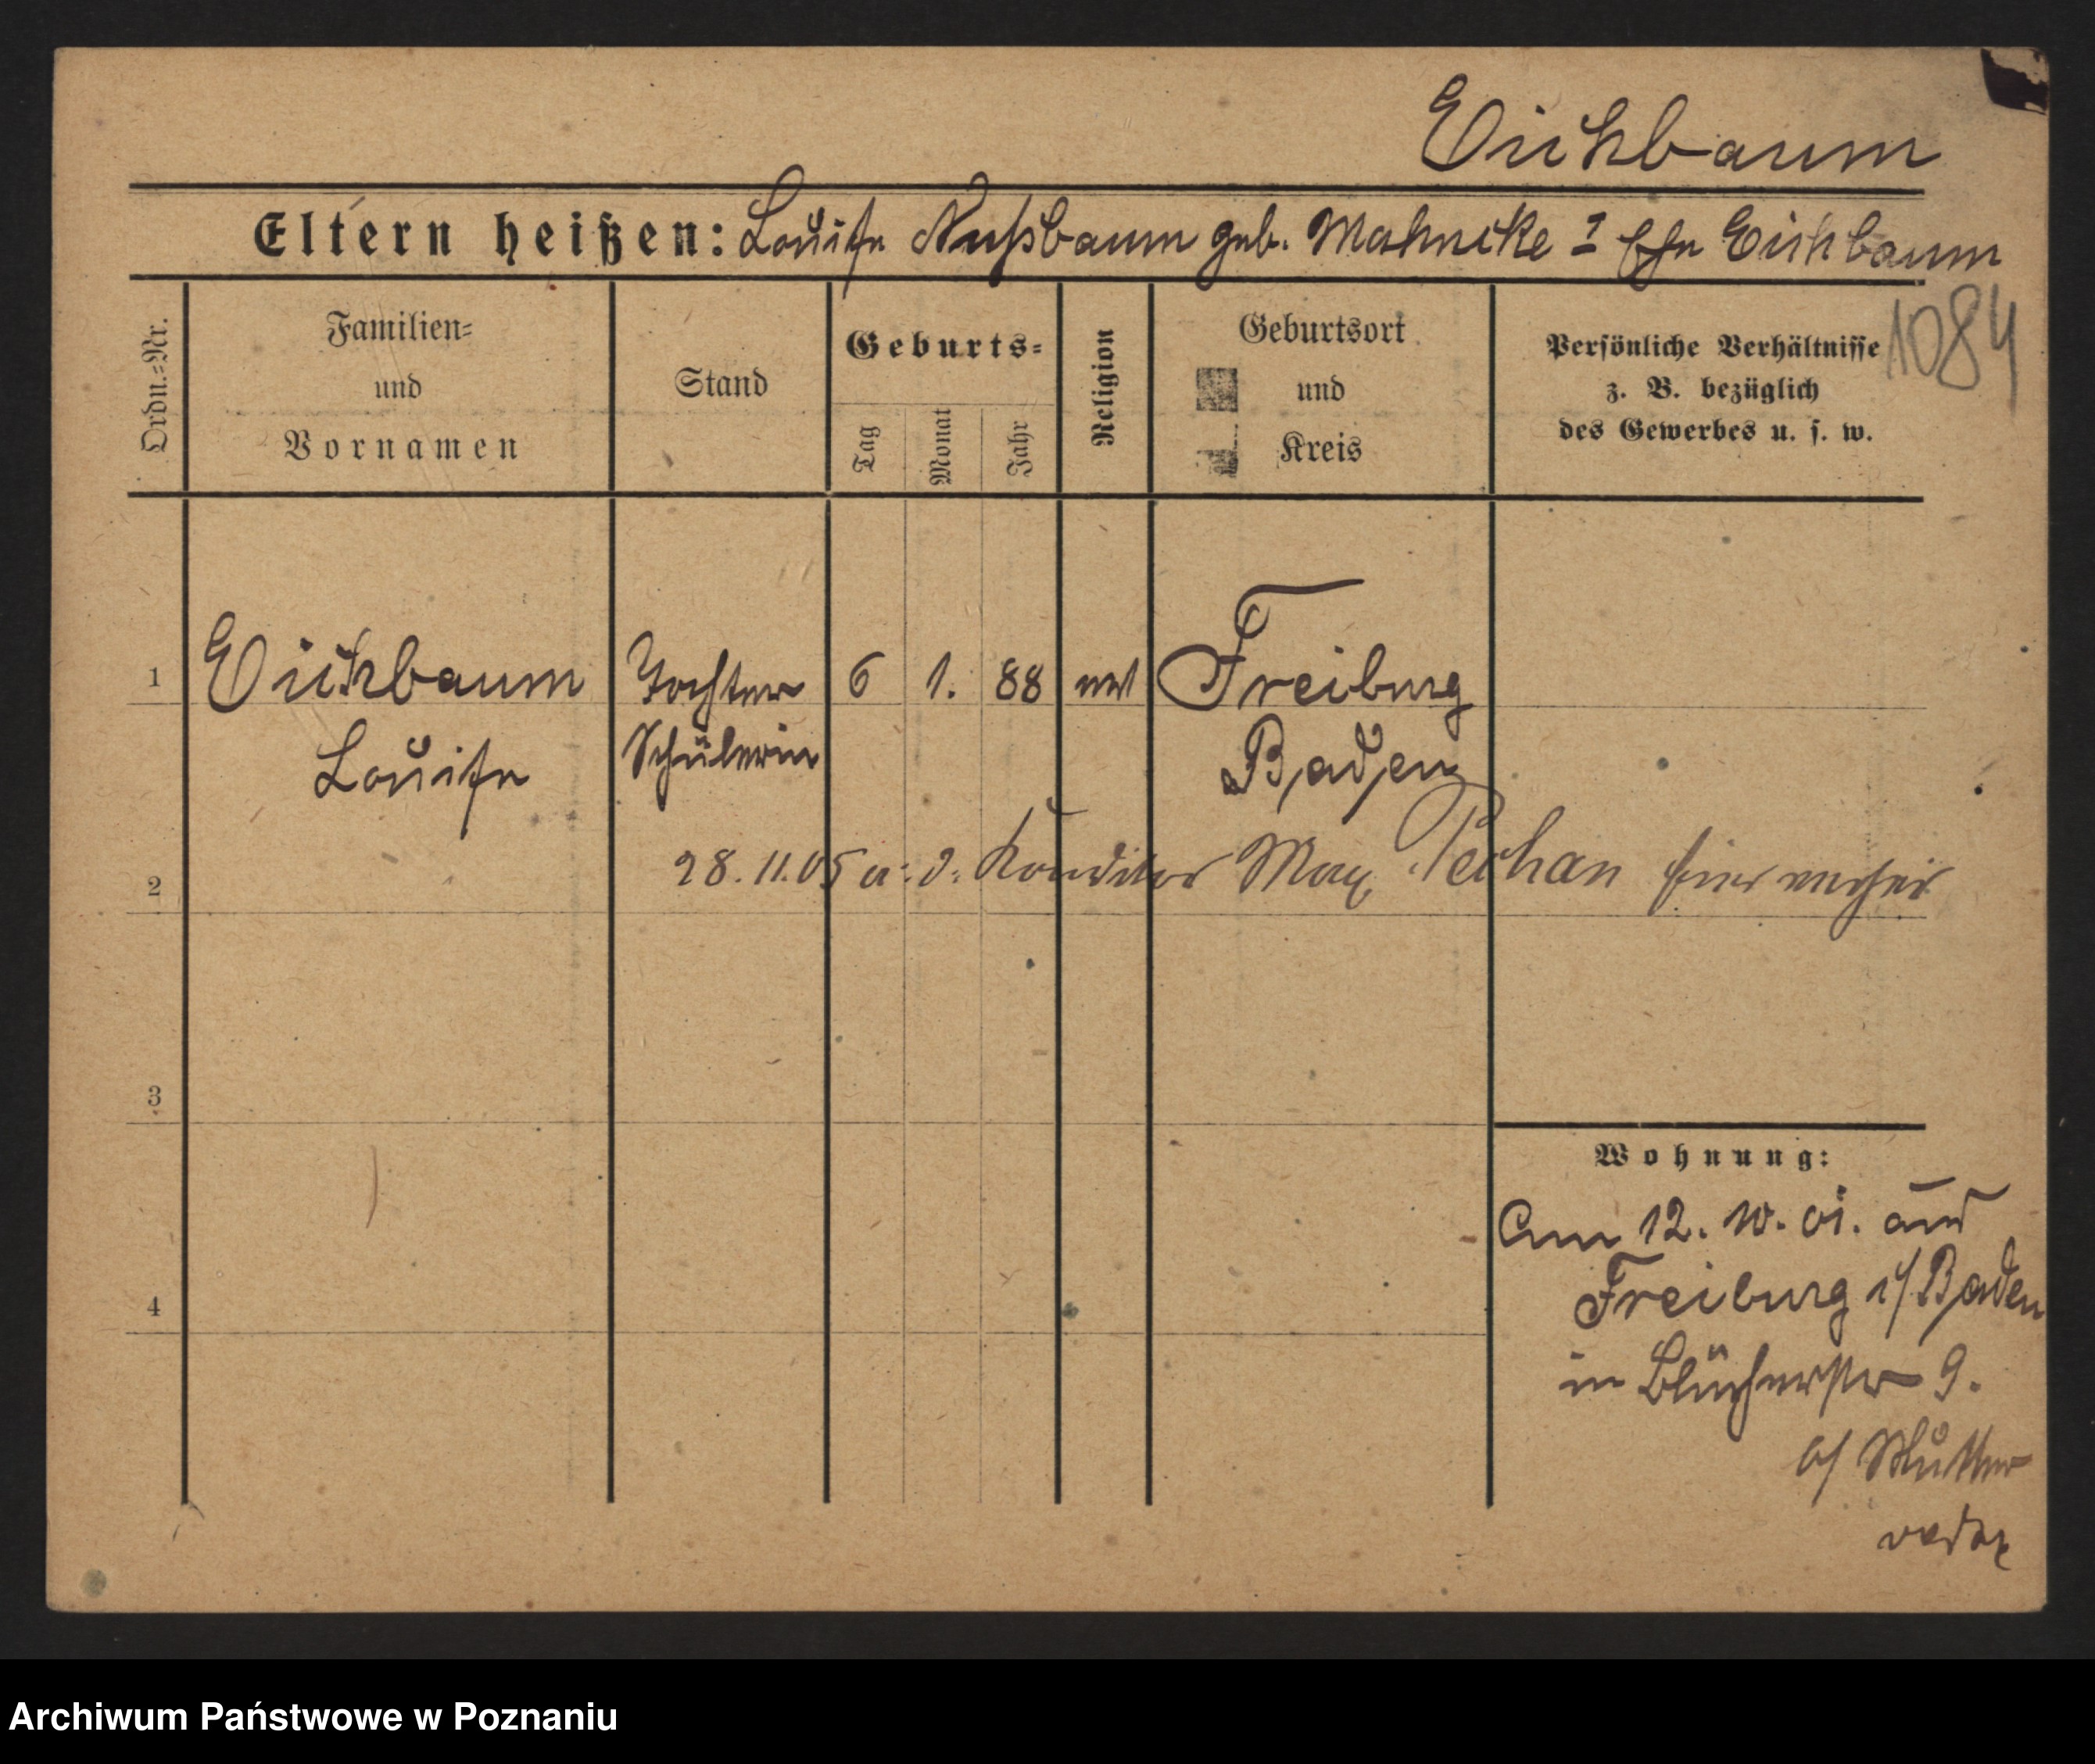 Eichbaum
Eltern heißen: Louise Nußbaum geb. Mahncke I Ehe Eichbaum
1084
Ordn.-Nr.
Familien-
und
Vornamen
Stand
Geburts-
Tag
Monat
Jahr
Religion
Geburtsort
und
Kreis
Persönliche Verhältnisse
z. B. bezüglich
des Gewerbes u. s. w.
1 Eichbaum Tochter 6 1. 88 Freiburg
Louise Schülerin Baden
2 28.11.05 a. d. Konditor Max Pechan hier verheir
3
4
Wohnung:
Am 12. 10. 01. aus
Freiburg i/Baden
in Blücherstr 9.
b/ Mutter